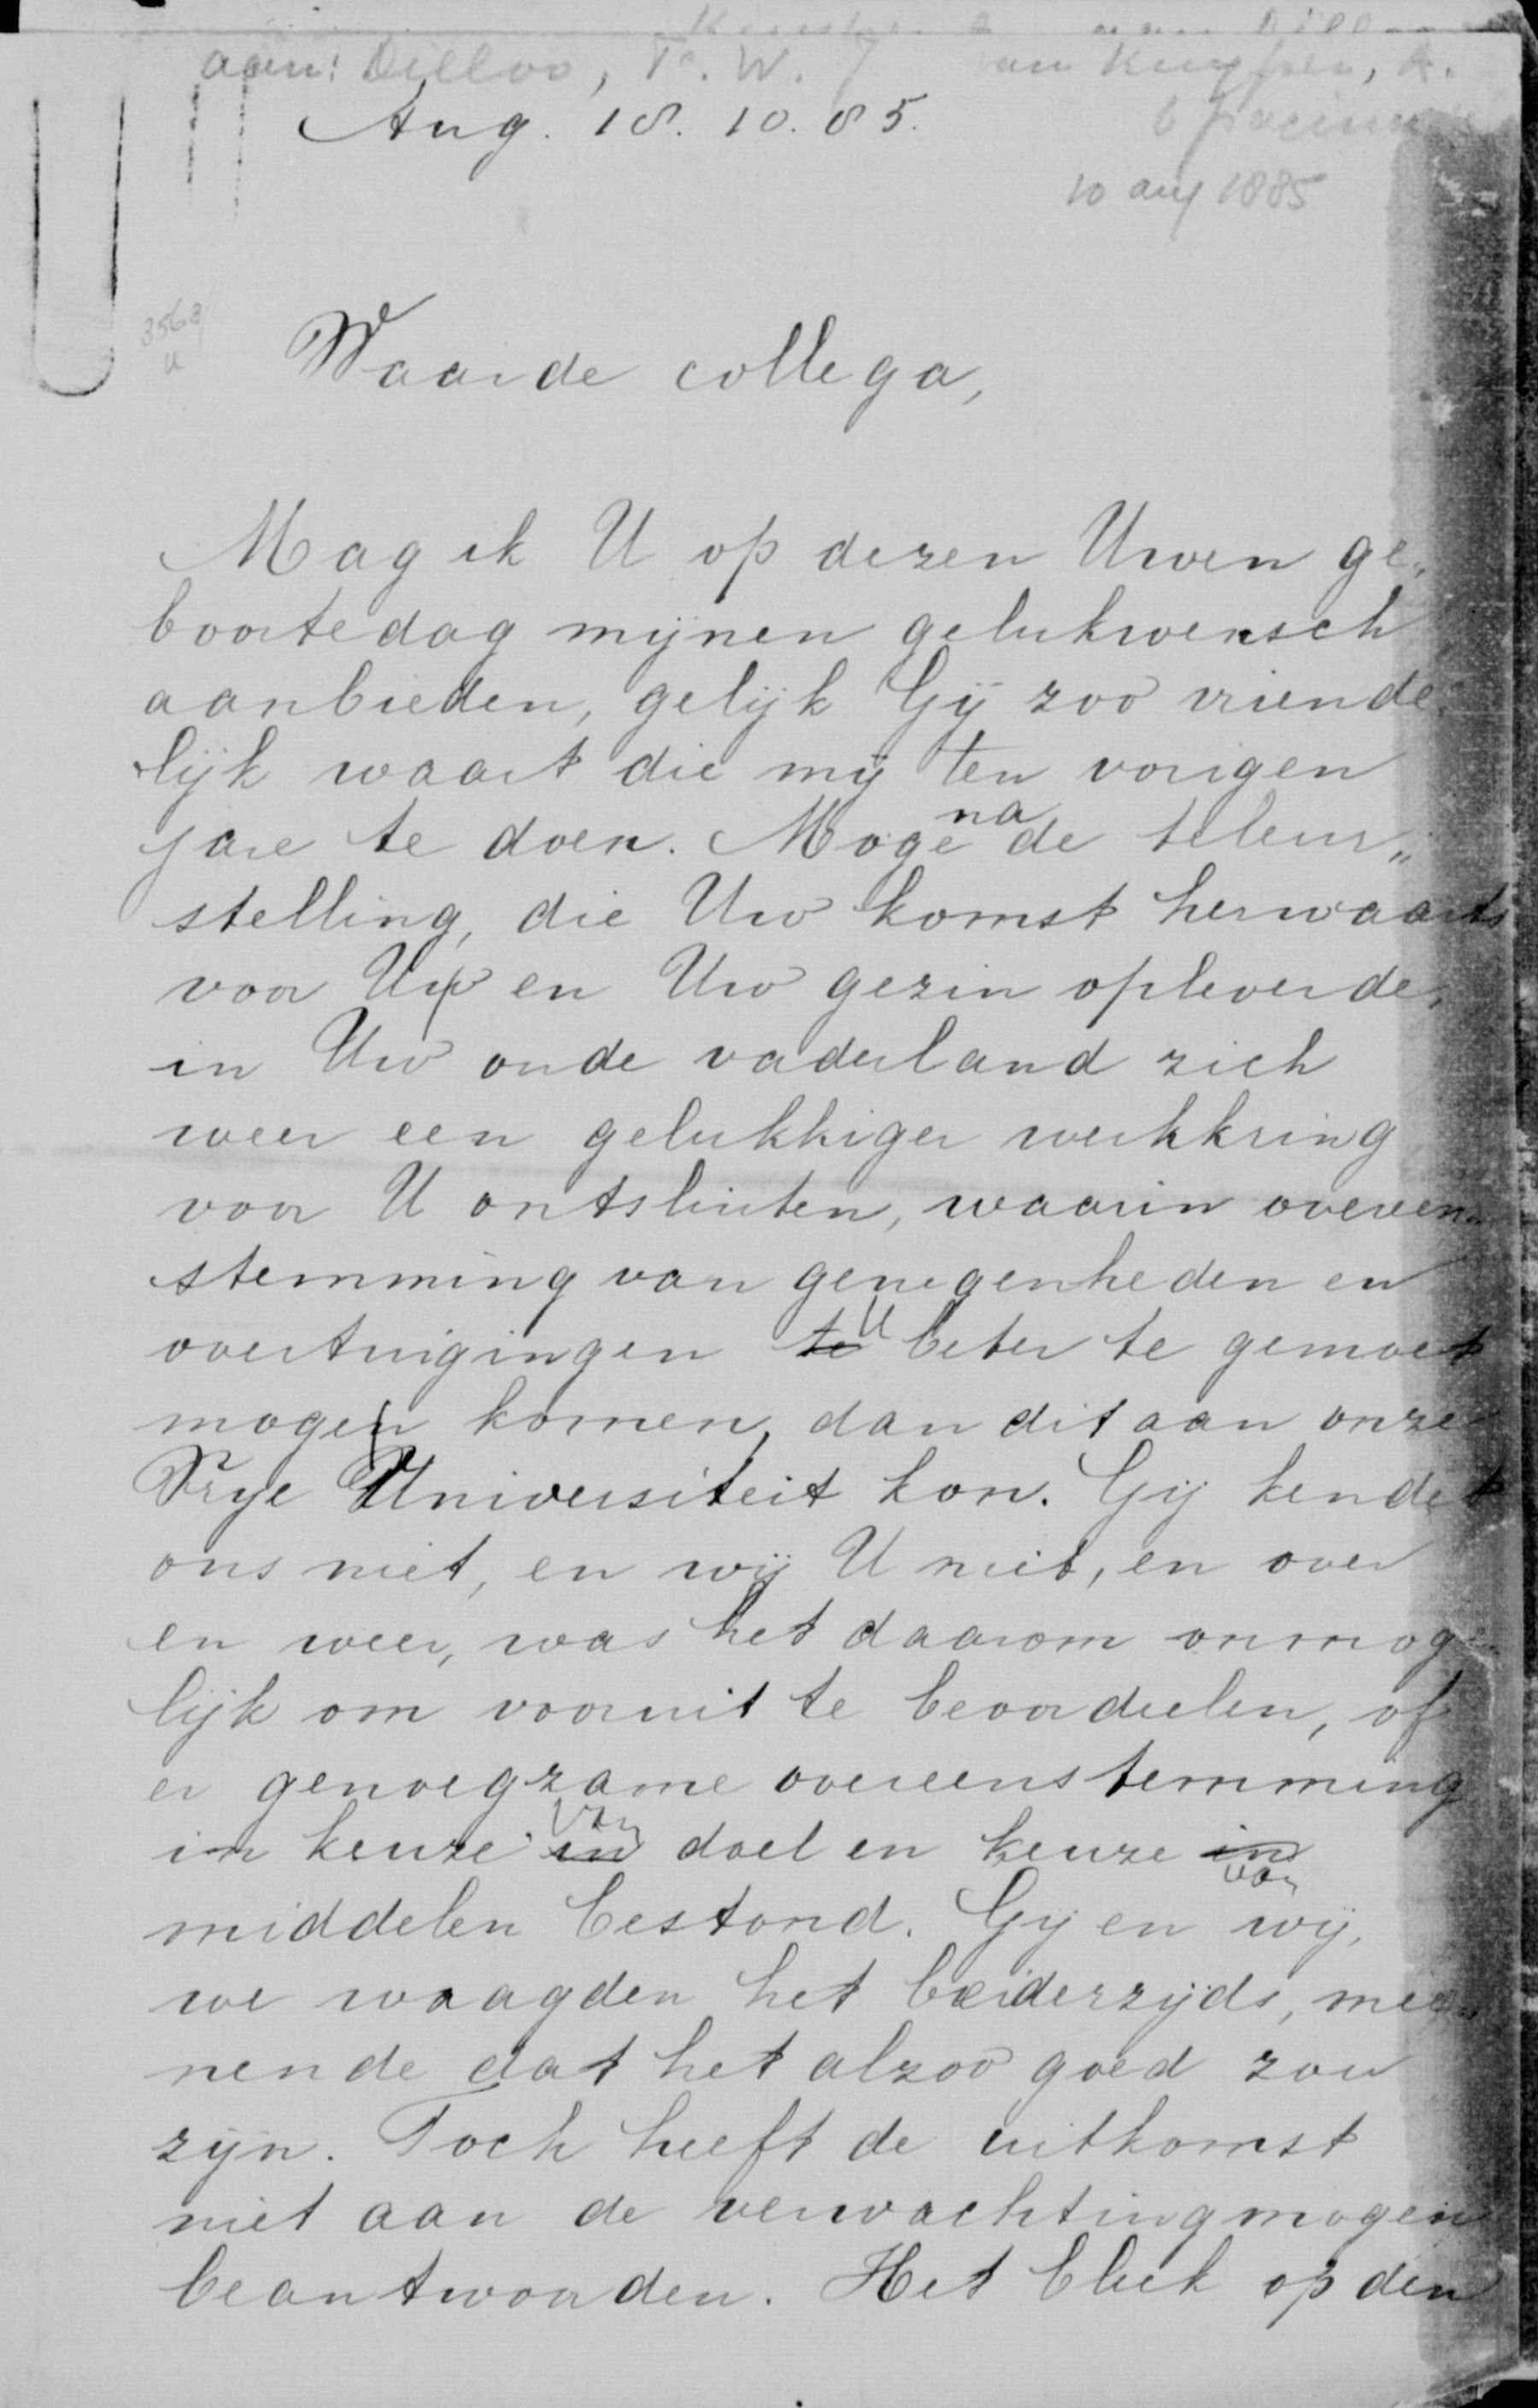 aan: Dilloo, F. W. J van Kuyper, A.
Aug. 18. 10. 85.
10 aug 1885
3563
Waarde collega,
Mag ik U op dezen Uwen ge-
boortedag mijnen gelukwensch
aanbieden, gelijk Gij zoo vriende
lijk waart die mij ten vorigen
jare te doen. Moge na de teleur„
stelling, die Uw komst herwaarts
voor U en Uw gezin opleverde,
in Uw oude vaderland zich
weer een gelukkiger werkkring
voor U ontsluiten, waarin overeen„
stemming van genegenheden en
overtuigingen te U beter te gemoet
mogen komen, dan dit aan onze
Vrije Universiteit kon. Gij kendet
ons niet, en wij U niet, en over
en weer, was het daarom onmoge
lijk om vooruit te beoordeelen, of
er genoegzame overeenstemming
in keuze in van doel en keuze in van
middelen bestond. Gij en wij,
we waagden het beiderzijds, mee„
nende dat het alzoo goed zou
zijn. Toch heeft de uitkomst
niet aan de verwachting mogen
beantwoorden. Het bleek op den